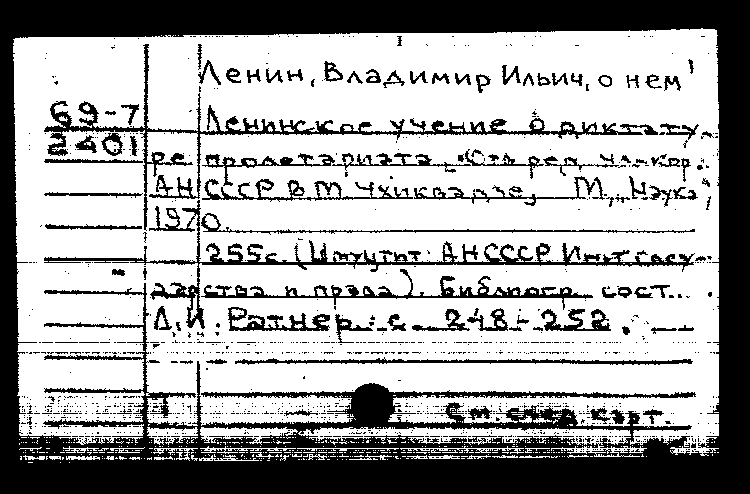 Ленин, Владимир Ильич, о нем
69-7
2401
Ленинское учение о диктату-
ре пролетариата. Отв. ред. чл.-кор.
АН СССР В.М. Чхиквадзе, М., "Наука",
1970.
255с. (АН СССР Ин-т госу-
дарства и права). Библиогр. сост.
Л.И. Ратнер: с. 248-252.
См. след. карт.